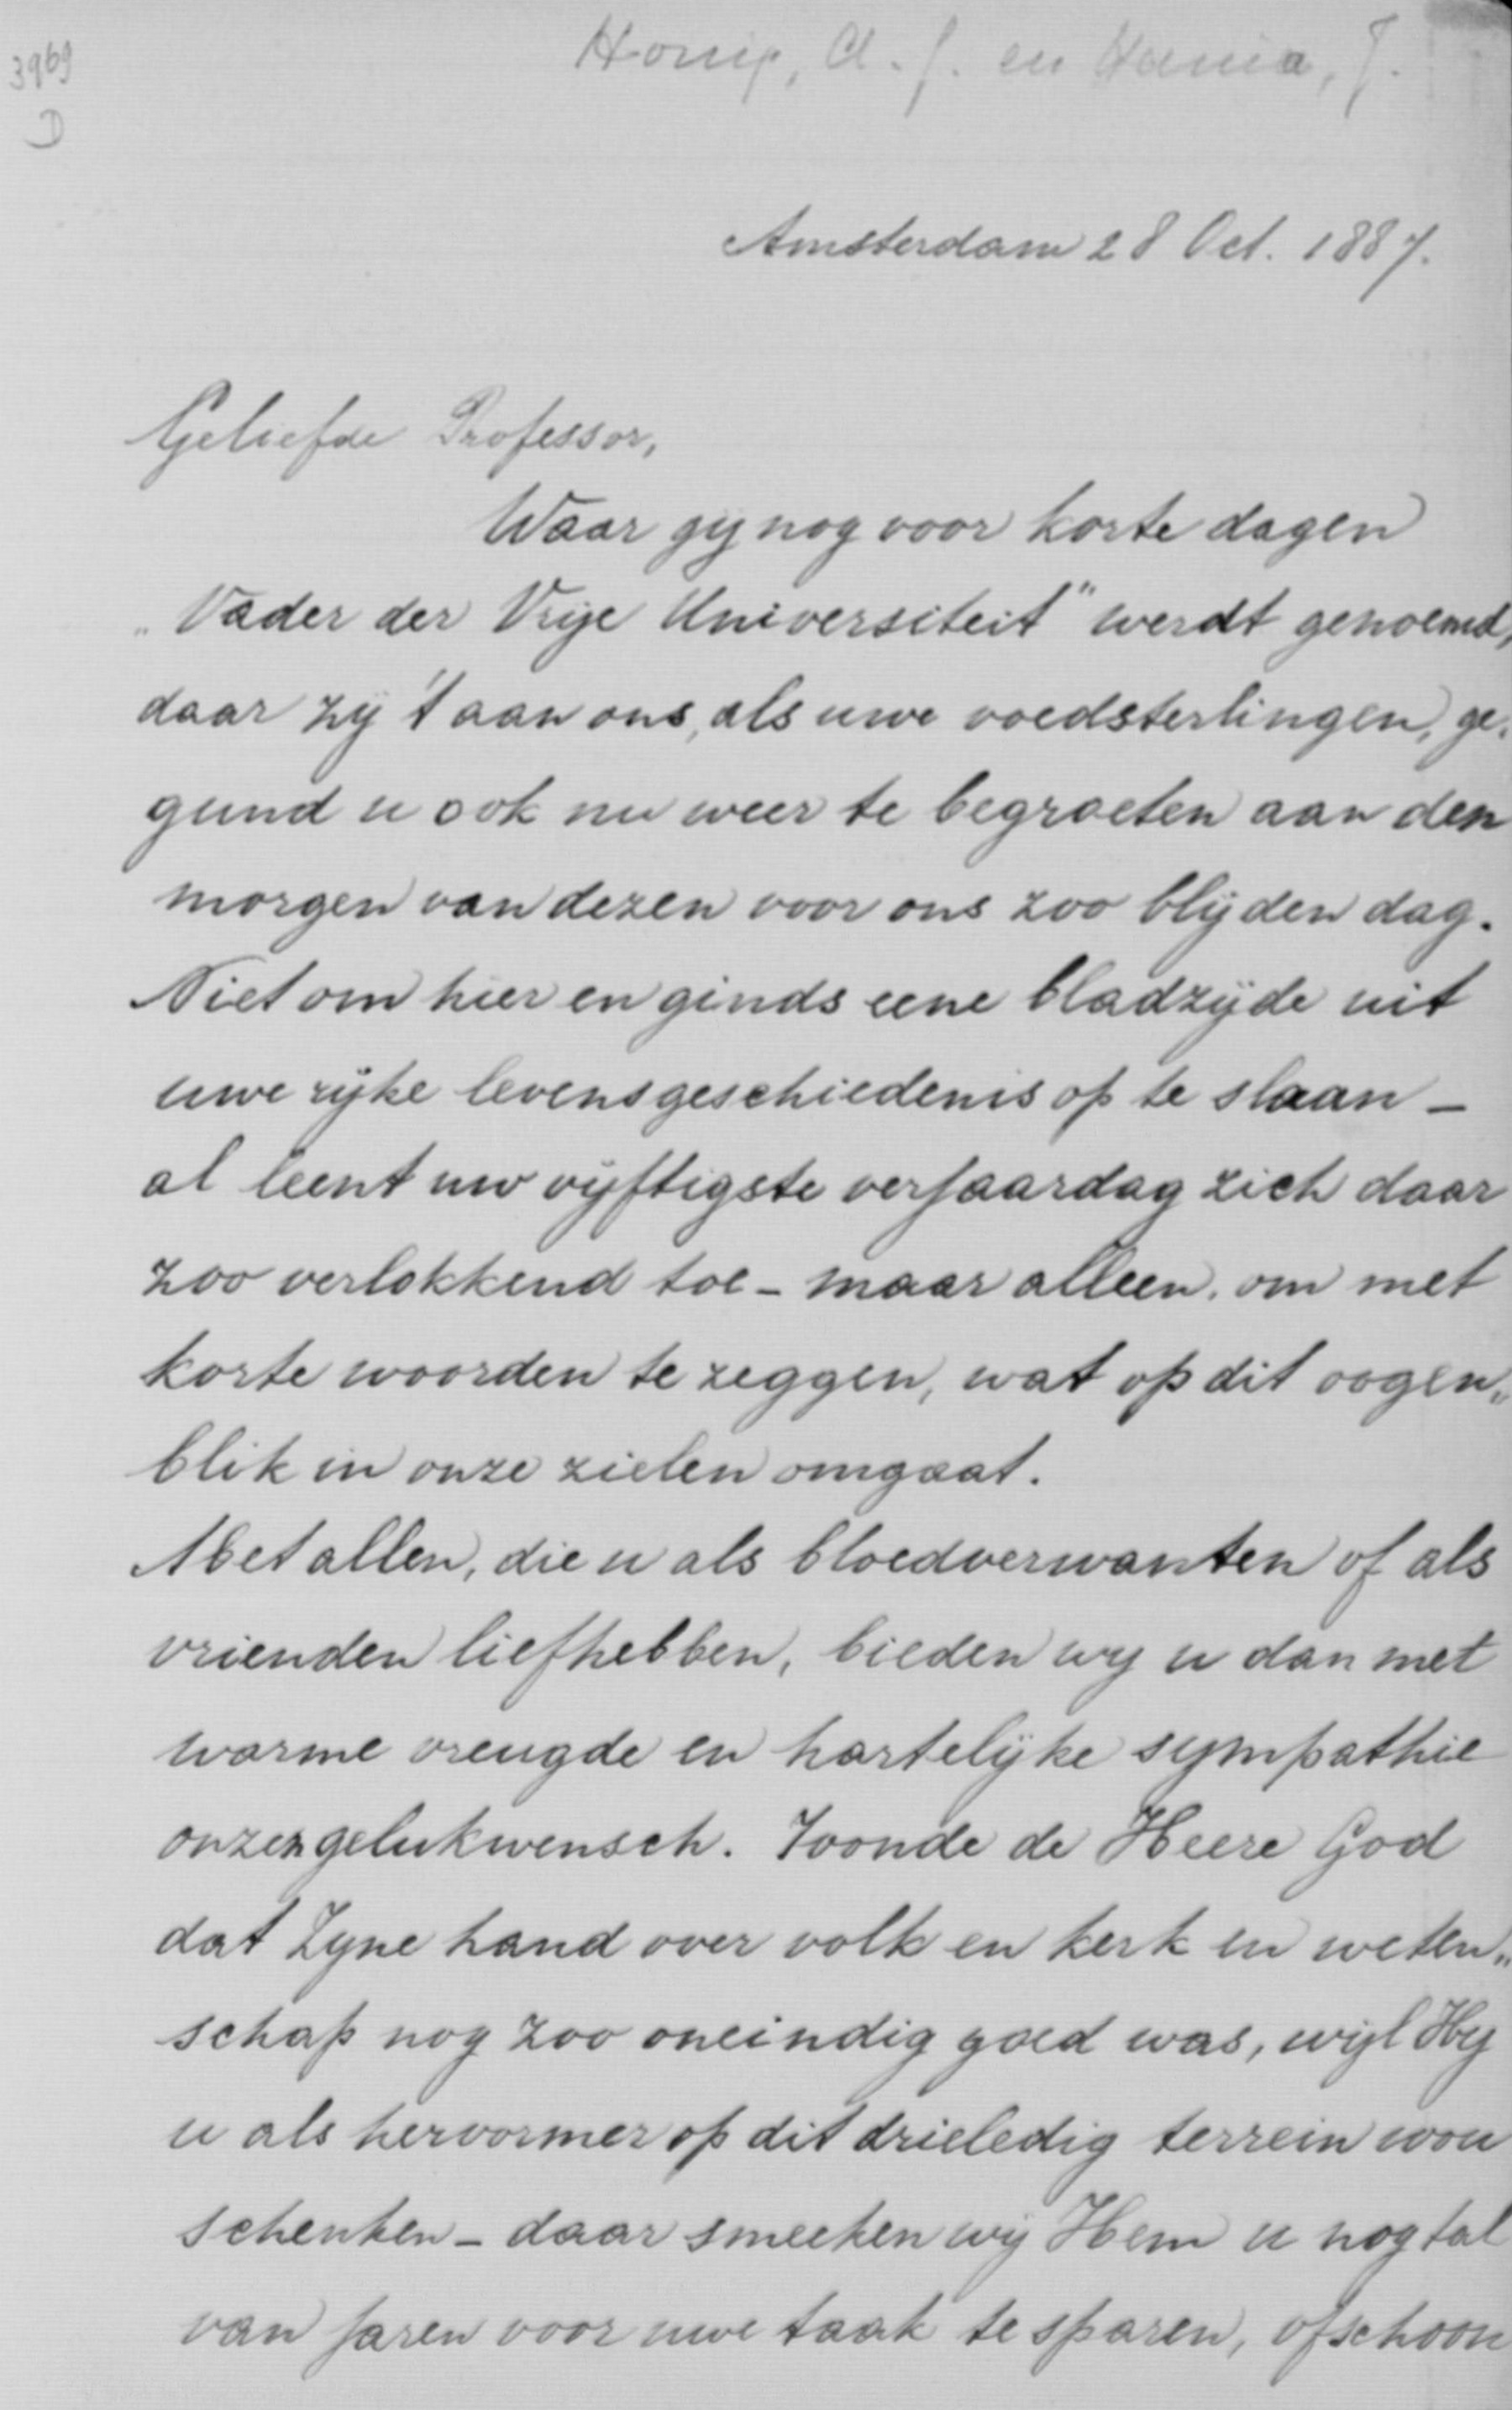 3969
D
Honig, A. J. en Hania, J.
Amsterdam 28 Oct. 1887.
Geliefde Professor,
Waar gij nog voor korte dagen
„Vader der Vrije Universiteit" werdt genoemd,
daar zij 't aan ons, als uwe voedsterlingen, ge-
gund u ook nu weer te begroeten aan den
morgen van dezen voor ons zoo blijden dag.
Niet om hier en ginds eene bladzijde uit
uwe rijke levensgeschiedenis op te slaan —
al leent uw vijftigste verjaardag zich daar
zoo verlokkend toe — maar alleen, om met
korte woorden te zeggen, wat op dit oogen„
blik in onze zielen omgaat.
Met allen, die u als bloedverwanten of als
vrienden liefhebben, bieden wij u dan met
warme vreugde en hartelijke sympathie
onzen gelukwensch. Toonde de Heere God
dat Zijne hand over volk en kerk en weten„
schap nog zoo oneindig goed was, wijl Hij
u als hervormer op dit drieledig terrein wou
schenken — daar smeeken wij Hem u nog tal
van jaren voor uwe taak te sparen, ofschoon